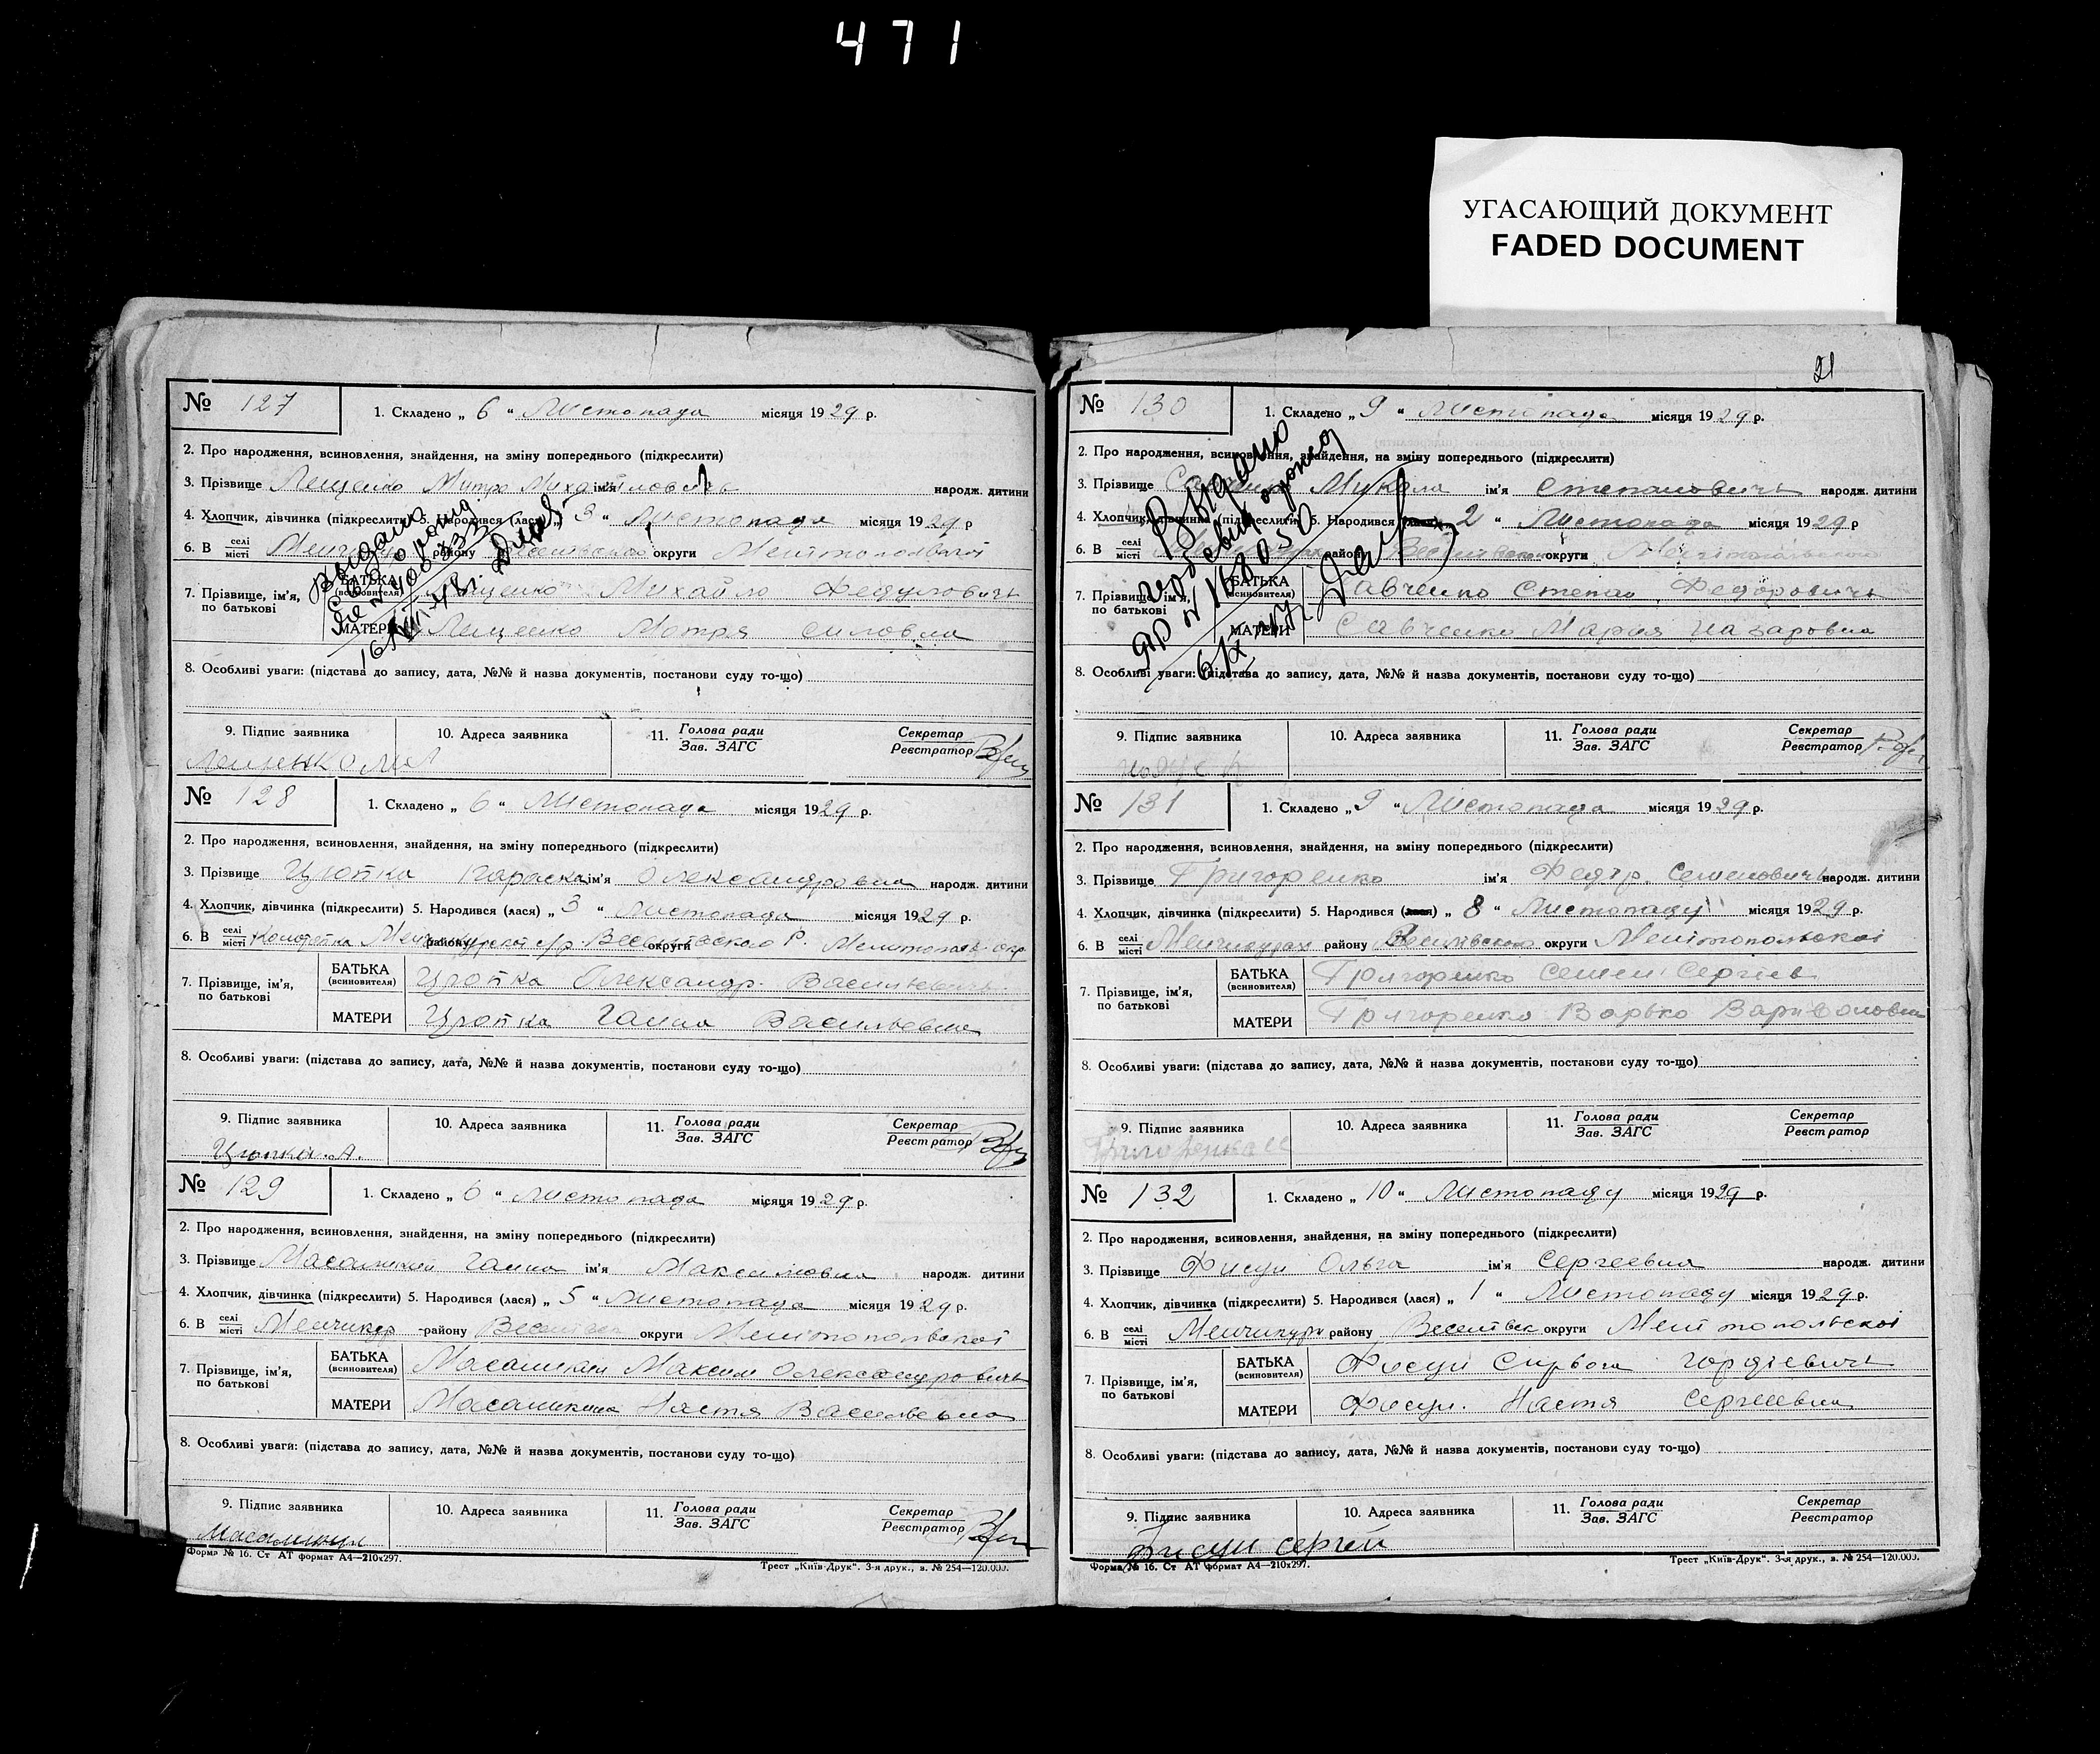 471
УГАСАЮЩИЙ ДОКУМЕНТ
FADED DOCUMENT
№ 127
1. Складено „ 6 “ Листопада місяця 1929 р.
2. Про народження, всиновлення, знайдення, на зміну попереднього (підкреслити)
3. Прізвище Лещенко Митро Михайлович ім'я народж. дитини
4. Хлопчик, дівчинка (підкреслити) 5. Народився (лася) „ 3 “ Листопада місяця 1929 р
6. В селі місті району округи Мелітопольської
7. Прізвище, ім'я, по батькові
БАТЬКА (всиновителя) Лещенко Михайло Федулович
МАТЕРИ Лещенко Мотря Силовна
Выдано
8. Особливі уваги: (підстава до запису, дата, №№ й назва документів, постанови суду то-що)
9. Підпис заявника 10. Адреса заявника 11. Голова ради Зав. ЗАГС Секретар Реєстратор
№ 128
1. Складено „ 6 “ Листопада місяця 1929 р.
2. Про народження, всиновлення, знайдення, на зміну попереднього (підкреслити)
3. Прізвище Цюпка Параска ім'я Олександровна народж. дитини
4. Хлопчик, дівчинка (підкреслити) 5. Народився (лася) „ 3 “ Листопада місяця 1929 р.
6. В селі місті району с/р. округи Р. Мелитопол. окр
7. Прізвище, ім'я, по батькові
БАТЬКА (всиновителя) Цюпка Олександр. Васильевичь
МАТЕРИ Цюпка Ганна Васильевна
8. Особливі уваги: (підстава до запису, дата, №№ й назва документів, постанови суду то-що)
9. Підпис заявника 10. Адреса заявника 11. Голова ради Зав. ЗАГС Секретар Реєстратор
Цюпка. А.
№ 129
1. Складено „ 6 “ Листопада місяця 1929 р.
2. Про народження, всиновлення, знайдення, на зміну попереднього (підкреслити)
3. Прізвище Ганна ім'я Максимовна народж. дитини
4. Хлопчик, дівчинка (підкреслити) 5. Народився (лася) „ 5 “ Листопада місяця 1929 р.
6. В селі місті Менчикур району округи Мелітопольської
7. Прізвище, ім'я, по батькові
БАТЬКА (всиновителя) Максим Олександровичь
МАТЕРИ Настя Васильевна
8. Особливі уваги: (підстава до запису, дата, №№ й назва документів, постанови суду то-що)
9. Підпис заявника 10. Адреса заявника 11. Голова ради Зав. ЗАГС Секретар Реєстратор
Форма № 16. Ст АТ формат А4—210х297. Трест „Київ-Друк“. 3-я друк., з. № 254—120.000.
21
№ 130
1. Складено „ 9 “ Листопада місяця 1929 р.
2. Про народження, всиновлення, знайдення, на зміну попереднього (підкреслити)
3. Прізвище Савченко Микола ім'я Степановичь народж. дитини
4. Хлопчик, дівчинка (підкреслити) 5. Народився „ 2 “ Листопада місяця 1929 р
6. В селі місті району округи
7. Прізвище, ім'я, по батькові
БАТЬКА (всиновителя) Савченко Степан Федоровичь
МАТЕРИ Савченко Мария Назаровна
Выдано
8. Особливі уваги: (підстава до запису, дата, №№ й назва документів, постанови суду то-що)
9. Підпис заявника 10. Адреса заявника 11. Голова ради Зав. ЗАГС Секретар Реєстратор
№ 131
1. Складено „ 9 “ Листопада місяця 1929 р.
2. Про народження, всиновлення, знайдення, на зміну попереднього (підкреслити)
3. Прізвище Григоренко ім'я Федір. Семеновичь народж. дитини
4. Хлопчик, дівчинка (підкреслити) 5. Народився (лася) „ 8 “ Листопаду місяця 1929 р.
6. В селі місті Менчикурах району Веселівською округи Мелітопольскої
7. Прізвище, ім'я, по батькові
БАТЬКА (всиновителя) Григоренко Семен Сергіев
МАТЕРИ Григоренко Варивоновна
8. Особливі уваги: (підстава до запису, дата, №№ й назва документів, постанови суду то-що)
9. Підпис заявника 10. Адреса заявника 11. Голова ради Зав. ЗАГС Секретар Реєстратор
№ 132
1. Складено „ 10 “ Листопаду місяця 1929 р.
2. Про народження, всиновлення, знайдення, на зміну попереднього (підкреслити)
3. Прізвище Фисун Ольга ім'я Сергеевна народж. дитини
4. Хлопчик, дівчинка (підкреслити) 5. Народився (лася) „ 1 “ Листопаду місяця 1929 р.
6. В селі місті Менчикури району Веселівськ округи Мелітопольскої
7. Прізвище, ім'я, по батькові
БАТЬКА (всиновителя) Фисун Гордіевичь
МАТЕРИ Фисун. Настя Сергеевна
8. Особливі уваги: (підстава до запису, дата, №№ й назва документів, постанови суду то-що)
9. Підпис заявника 10. Адреса заявника 11. Голова ради Зав. ЗАГС Секретар Реєстратор
Фисун Сергей
Форма № 16. Ст АТ формат А4—210х297. Трест „Київ-Друк“. 3-я друк., з. № 254—120.000.